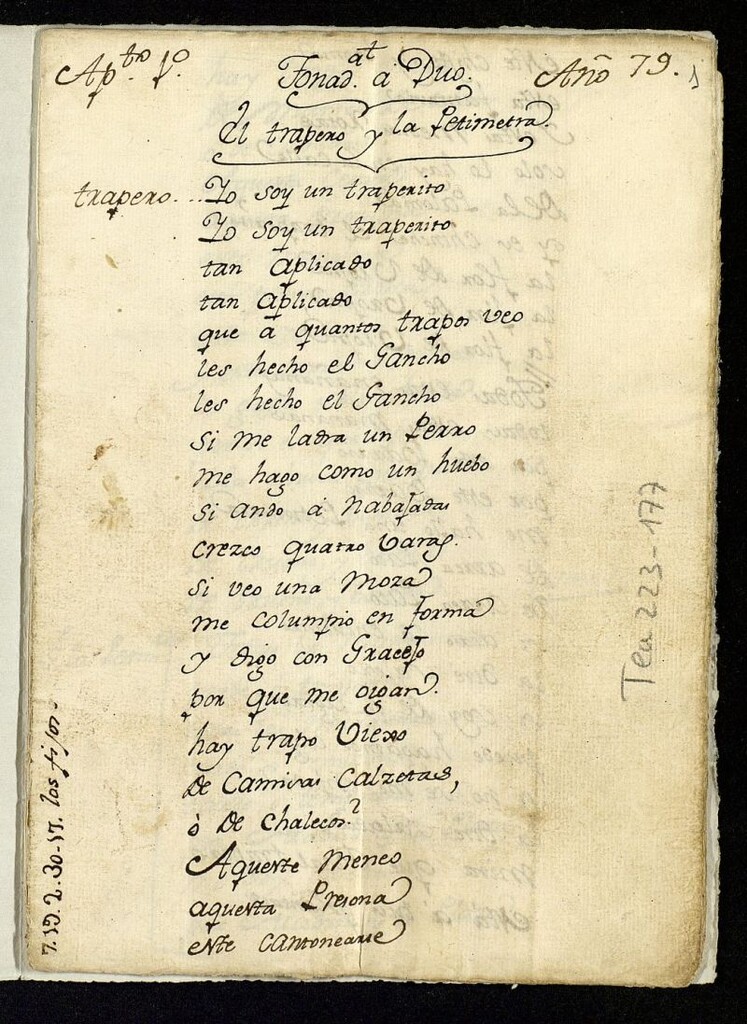 Ap.to 1º. Tonad.at a Duo. Año 79. 1
El trapero y la Petimetra.
trapero... Yo soy un traperito
Yo soy un traperito
tan aplicado
tan aplicado
que a quantos trapos veo
les hecho el Gancho
les hecho el Gancho
si me ladra un Perro
me hago como un huebo
si ando á nabajadas
crezco quatro varas.
si veo una Moza
me columpio en forma
y digo con Gracejo
por que me oigan.
hay trapo Viexo
de Camisas Calzetas,
ò de chalecos?
Aqueste meneo
aquesta Presona
este cantonearse
Tea 223-177
7.19.2.30-17. los fijos-